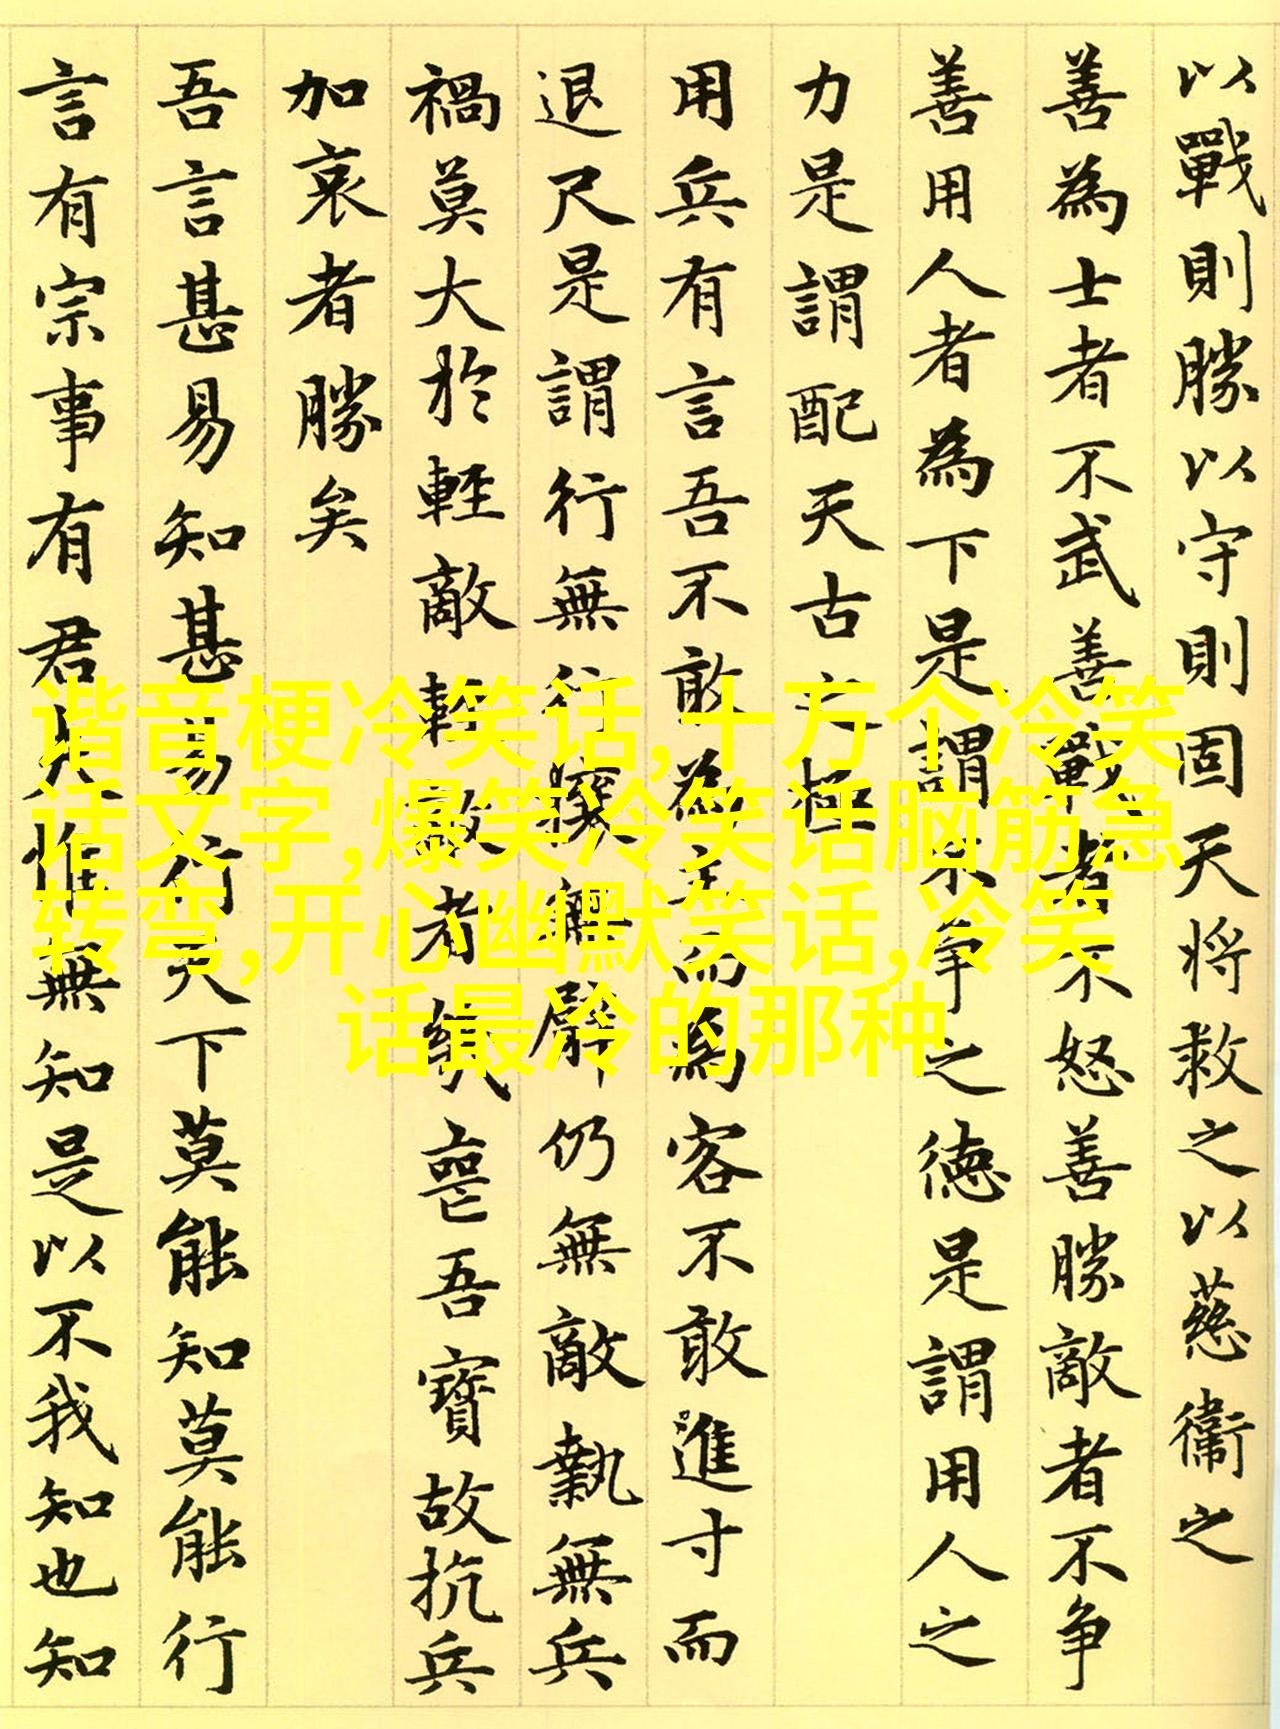 以戰則勝以守則固天将救之以慈衞之
善為士者不武善戰者不怒善勝敵者不争
善用人者為下是謂不争之德是謂用人之
力是謂配天古之極
用兵有言吾不敢為主而為客不敢進寸而
退尺是謂行無行攘無臂仍無敵執無兵
禍莫大於輕敵輕敵者幾喪吾寳故抗兵
加哀者勝矣
吾言甚易知甚易行天下莫能知莫能行
言有宗事有君夫惟無知是以不我知也知
谐音梗冷笑话,十万个冷笑
话文字,爆笑冷笑话脑筋急
转弯,开心幽默笑话,冷笑
话最冷的那种